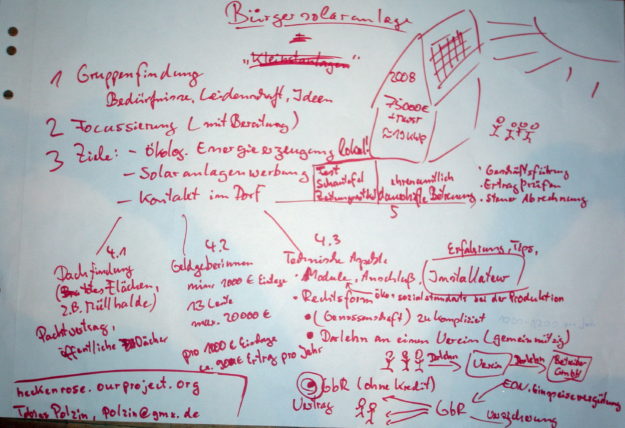 Bürgersolaranlage
=
"Kleinstanlagen"
1 Gruppenfindung
Bedürfnisse, Leidenschaft, Ideen
2 Focussierung (mit Beratung)
3 Ziele: - Ökolog. Energieerzeugung lokal!
- Solaranlagenwerbung
- Kontakt im Dorf
2008
75000€
+ MWST
≈ 19 kWp
Fest
Schautafel
ehrenamtlich
dauerhafte Betreuung
5
· Geschäftsführung
· Ertrag prüfen
· Steuer Abrechnung
4.1
Dachfindung
Flächen,
z.B. Müllhalde)
Pachtvertrag,
öffentliche Dächer
4.2
Geldgeberinnen
min 1000 € Einlage
13 Leute
max. 20000 €
pro 1000 € Einlage
ca. 900€ Ertrag pro Jahr
4.3
Technische Aspekte
· Module, Anschluß,
Erfahrung, Tips,
Installateur
· Rechtsform öko + sozialstandards bei der Produktion
· (Genossenschaft) zu kompliziert
· Darlehn an einen Verein (gemeinnützig)
Darlehn Verein Darlehn Betreiber GmbH
GbR (ohne Kredit)
EON, Einspeisevergütung
Vertrag GbR
Versicherung
heckenrose.ourproject.org
Tobias Polzin, polzin@gmx.de